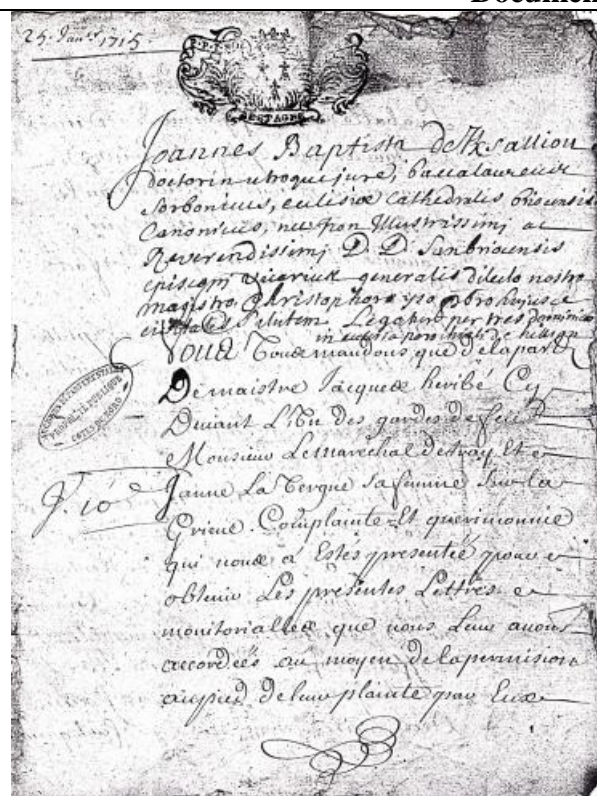 Documen
25. Janv.r 1715.
BRETAGNE
Joannes Baptista de Ksaliou
doctor in utroque jure, baccalaureus
Sorbonicus, eclisiæ Cathedralis briocensis
Canonicus, nec non Illustrissimj ac
Reverendissimj D. D. Sanbriocensis
episcopi vicarius generalis dilecto nostro
magistro Christophoro yso pbro hujusce
civitatis salutem Legatur per tres dominicas
in ecclesia parochiali de hillion
Nous Vous mandons que de la part
De maistre Jacques heribé Cy
Devant L. des gardes de feu
Monsieur Le marechal destray Et
Janne La Vergne sa femme Sur La
Grieue Complainte Et querimonnie
qui nous a Estés presentée pour
obtenir Les presentes Lettres
monitorialles que nous Leur auons
accordées au moyen de la permision
au pied de leur plainte par Eux
ARCHIVES DEPARTEMENTALES
PROPRIETE PUBLIQUE
COTES DU NORD